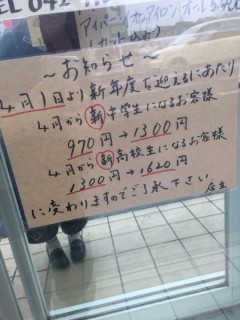 TEL 042
アイパー・アイロン・オールバック
(カット込み)
～お知らせ～
4月1日より新年度を迎えるにあたり
4月から新中学生になるお客様
970円→1300円
4月から新高校生になるお客様
1300円→1620円
に変わりますのでご了承下さい
店主